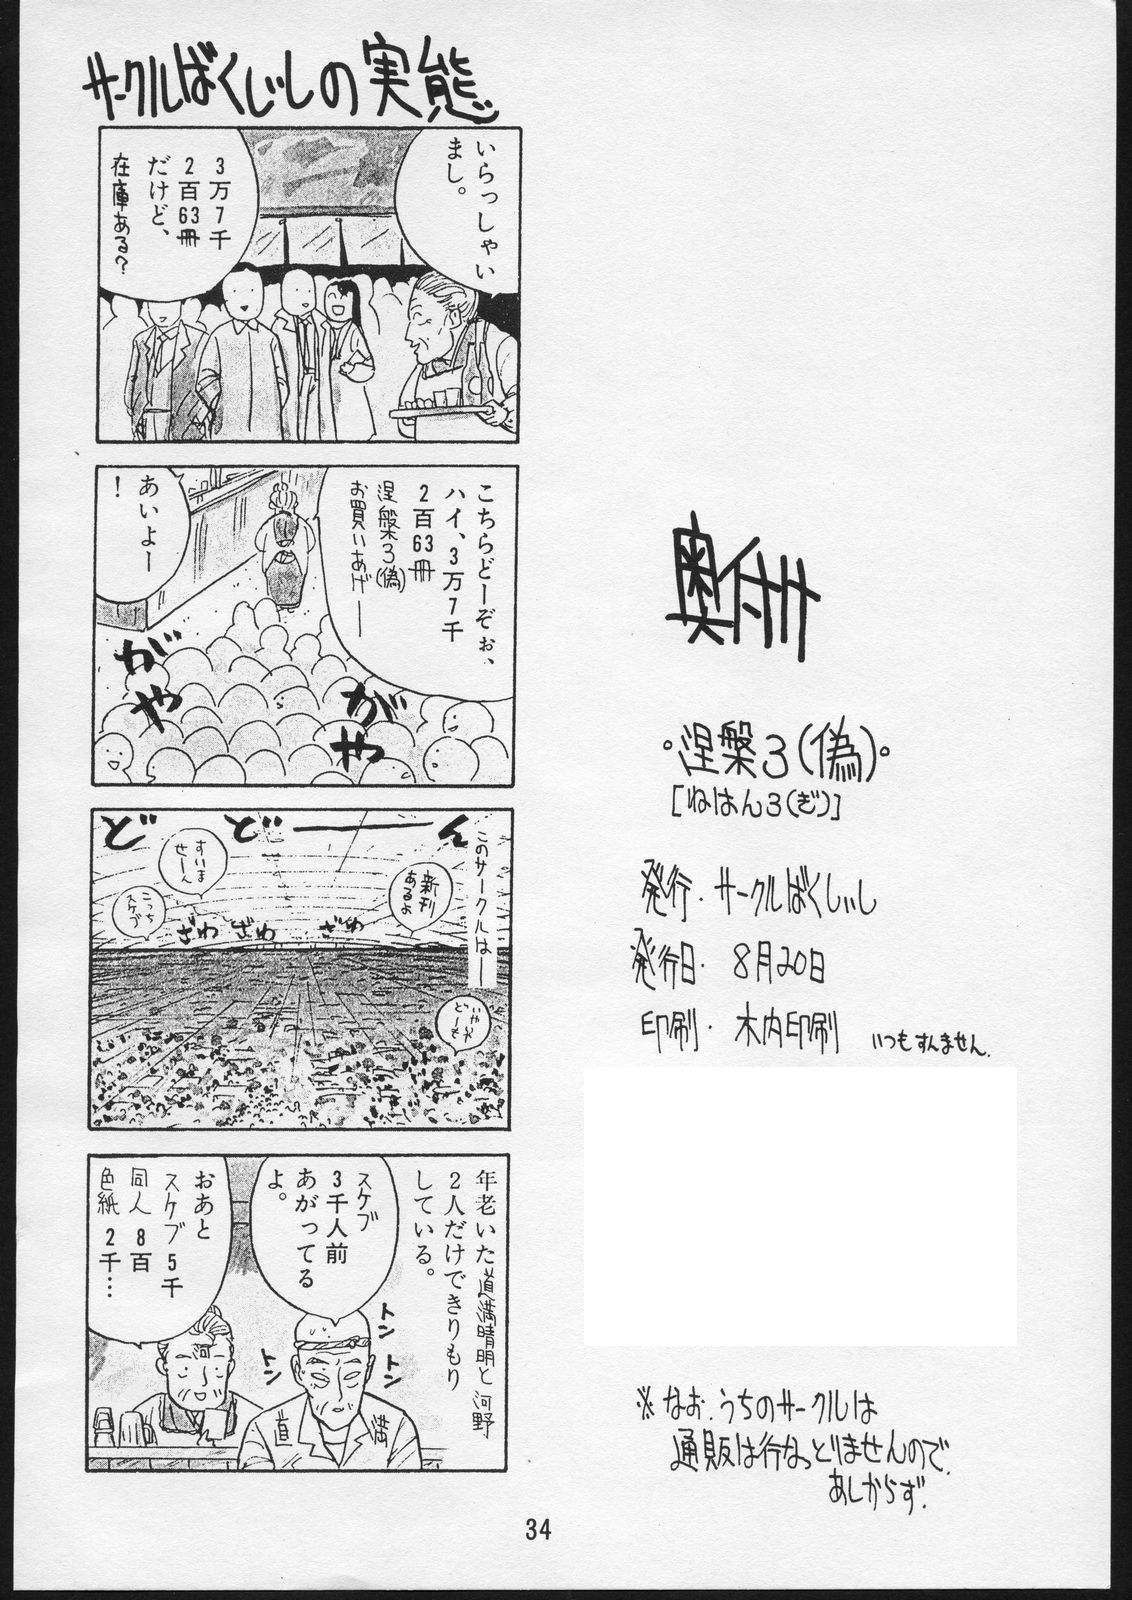 サークルばくしぃしの実態
いらっしゃい
まし。
3万7千
2百63冊
だけど、
在庫ある?
こちらどーぞぉ、
ハイ、3万7千
2百63冊
涅槃3(偽)
お買いあげー
あいよー
!
がや
がや
ど ど──ん
このサークルは──
新刊
あるよ
すいま
せーん
こっち
スケブ
ざわ ざわ ざわ
いやや
どーも
年老いた道満晴明と河野
2人だけできりもり
している。
スケブ
3千人前
あがってる
よ。
おあと
スケブ5千
同人8百
色紙2千…
トン
トン
トン
トン
河
道満
奥付
・涅槃3(偽)・
[ねはん3(ぎ)]
発行・サークルばくしぃし
発行日・8月20日
印刷・木内印刷 いつもすんません.
※なお、うちのサークルは
通販は行なっとりませんので、
あしからず.
34